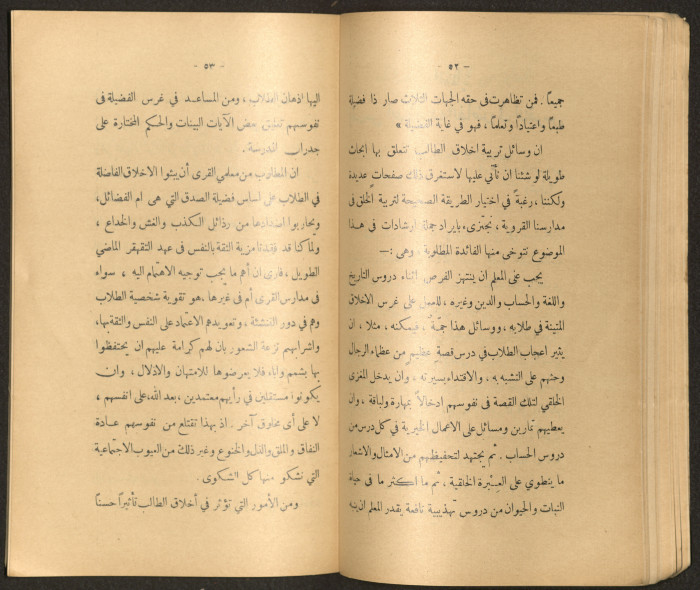 - ٥٢ -
جميعاً . فمن تظاهرت في حقه الجهات الثلاث صار ذا فضيلة
طبعاً واعتياداً وتعلماً ، فهو في غاية الفضيلة »
ان وسائل تربية اخلاق الطالب تتعلق بها ابحاث
طويلة لو شئنا ان نأتي عليها لاستغرق ذلك صفحات عديدة
ولكننا ، رغبةً في اختيار الطريقة الصحيحة لتربية الخلق في
مدارسنا القروية ، نجتزىء بايراد جملة ارشادات في هذا
الموضوع نتوخى منها الفائدة المطلوبة ، وهي :—
يجب على المعلم ان ينتهز الفرص اثناء دروس التاريخ
واللغة والحساب والدين وغيره ، للعمل على غرس الاخلاق
المتينة في طلابه ، ووسائل هذا جمّة ، فيمكنه ، مثلا ، ان
يثير اعجاب الطلاب في درس قصة عظيم من عظماء الرجال
وحثهم على التشبه به ، والاقتداء بسيرته ، وان يدخل المغزى
الخلقي لتلك القصة في نفوسهم ادخالاً بمهارة ولباقة ، وان
يعطيهم تمارين ومسائل على الاعمال الخيرية في كل درس من
دروس الحساب . ثم يجتهد لتحفيظهم من الامثال والاشعار
ما ينطوي على العبرة الخلقية ، ثم ما اكثر ما في حياة
النبات والحيوان من دروس تهذيبية نافعة يقدر المعلم ان ينبه
- ٥٣ -
اليها اذهان الطلاب ، ومن المساعد في غرس الفضيلة في
نفوسهم تعليق بعض الآيات البينات والحكم المختارة على
جدران المدرسة .
ان المطلوب من معلمي القرى أن يبثوا الاخلاق الفاضلة
في الطلاب على اساس فضيلة الصدق التي هي ام الفضائل،
ويحاربوا اضدادها من رذائل الكذب والغش والخداع ،
ولما كنا قد فقدنا مزية الثقة بالنفس في عهد التقهقر الماضي
الطويل ، فارى ان أهم ما يجب توجيه الاهتمام اليه ، سواء
في مدارس القرى أم في غيرها ،هو تقوية شخصية الطلاب
وهم في دور التنشئة ، وتعويدهم الاعتماد على النفس والثقة بها،
واشرابهم نزعة الشعور بان لهم كرامة عليهم ان يحتفظوا
بها بشمم واباء فلا يعرضوها للامتهان والاذلال ، وان
يكونوا مستقلين في رأيهم معتمدين ، بعد الله، على انفسهم ،
لا على أي مخلوق آخر . اذ بهذا تقتلع من نفوسهم عادة
النفاق والملق والذل والخنوع وغير ذلك من العيوب الاجتماعية
التي نشكو منها كل الشكوى .
ومن الأمور التي تؤثر في أخلاق الطالب تأثيراً حسناً